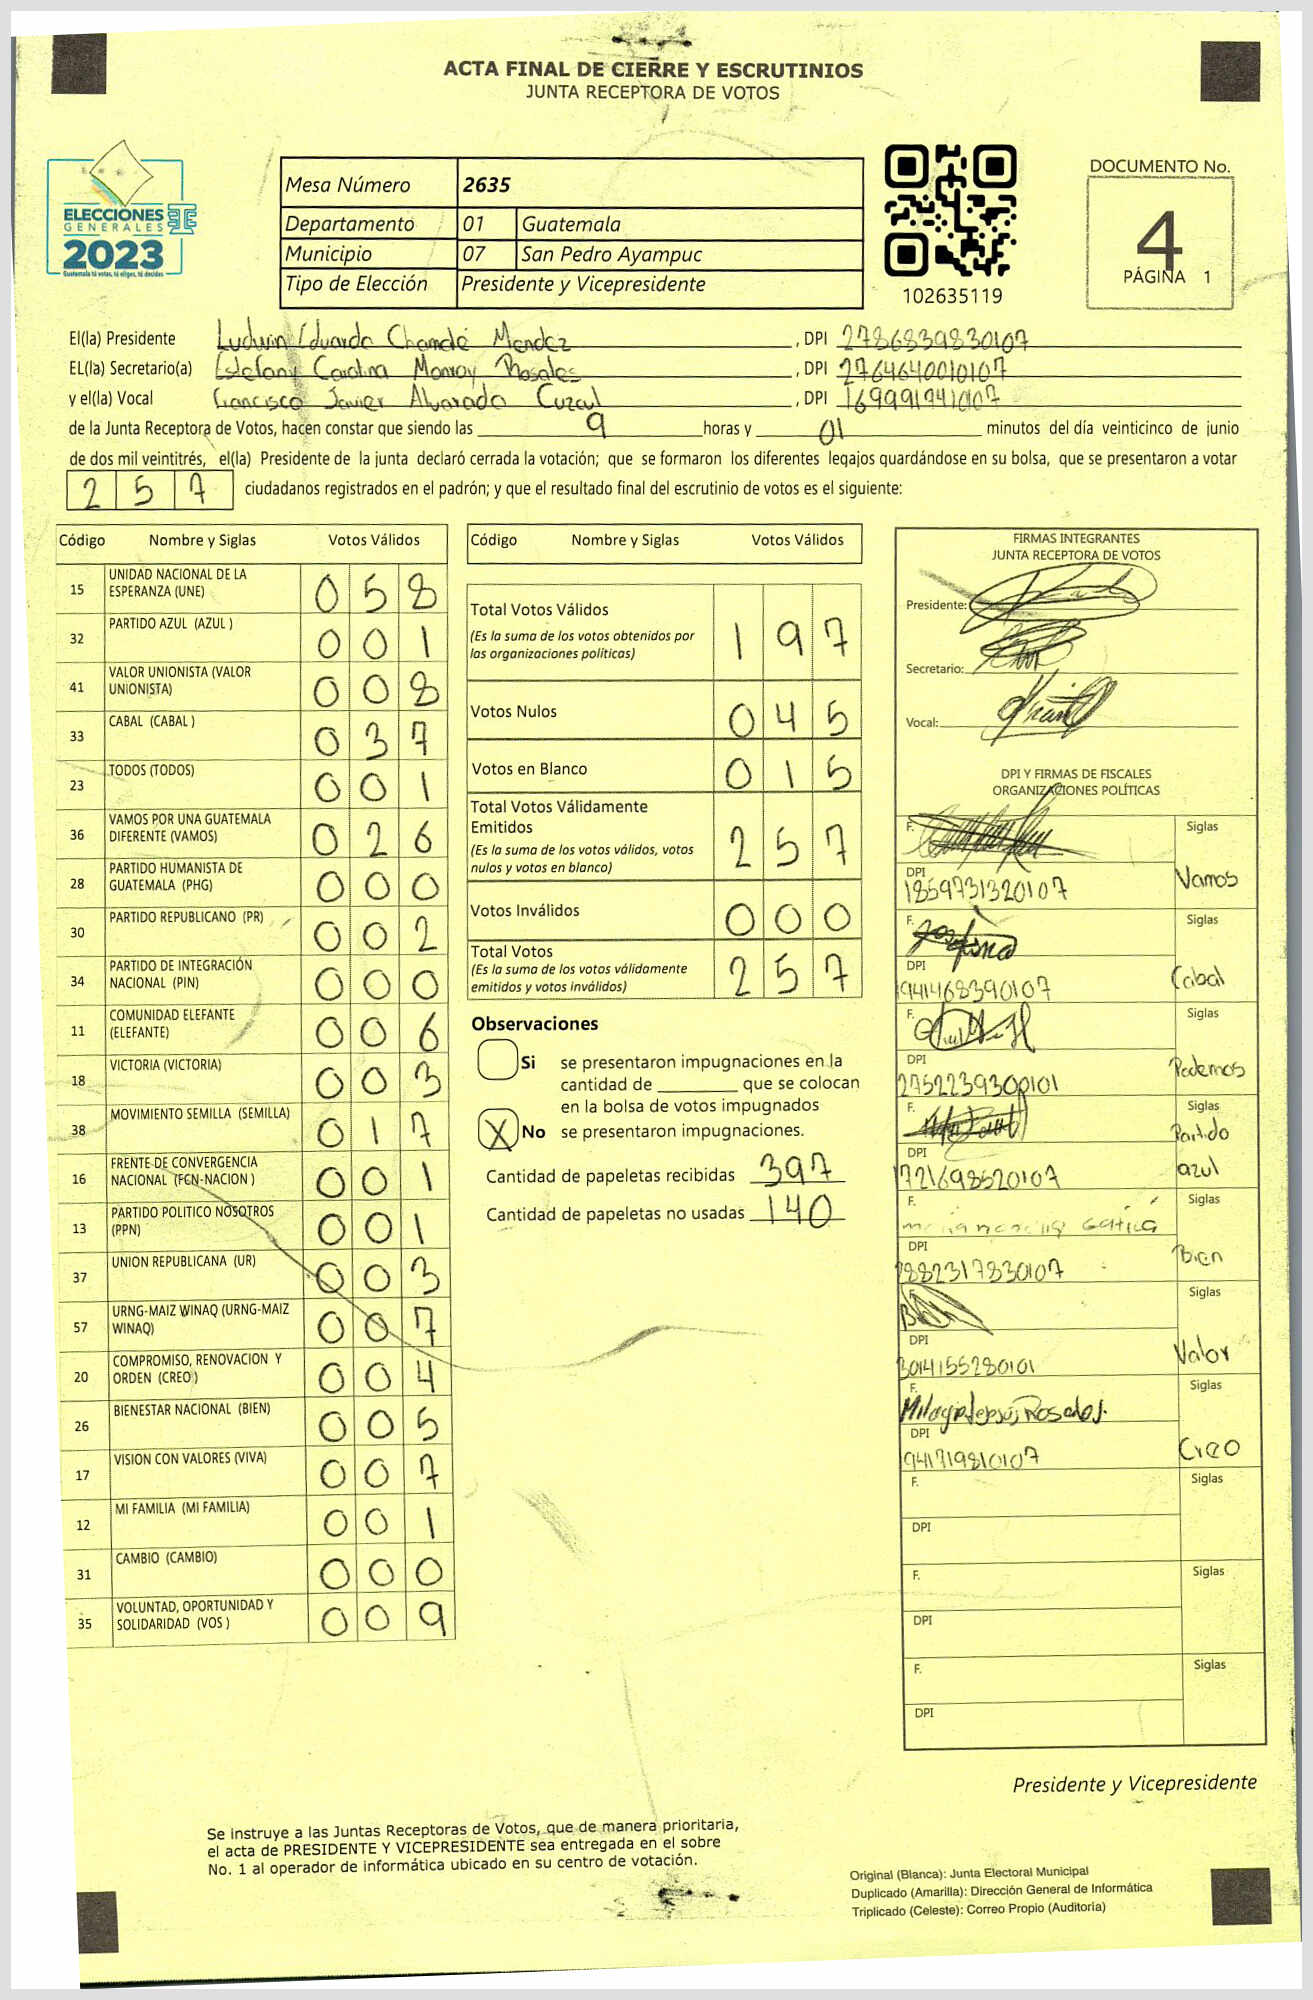 ACTA FINAL DE CIERRE Y ESCRUTINIOS
JUNTA RECEPTORA DE VOTOS
ELECCIONES
GENERALES
2023
Guatemala tú votas, tú eliges, tú decides
Mesa Número 2635
Departamento 01 Guatemala
Municipio 07 San Pedro Ayampuc
Tipo de Elección Presidente y Vicepresidente
102635119
DOCUMENTO No.
4
PÁGINA 1
El(la) Presidente Ludwin Eduardo Chamalé Mendez, DPI 2786839830107
EL(la) Secretario(a) Estefany Carolina Monroy Rosales, DPI 2764640010107
y el(la) Vocal Francisco Javier Alvarado Cuzcul, DPI 1699991741007
de la Junta Receptora de Votos, hacen constar que siendo las 9 horas y 01 minutos del día veinticinco de junio
de dos mil veintitrés, el(la) Presidente de la junta declaró cerrada la votación; que se formaron los diferentes legajos quardándose en su bolsa, que se presentaron a votar
257 ciudadanos registrados en el padrón; y que el resultado final del escrutinio de votos es el siguiente:
Código Nombre y Siglas Votos Válidos
15 UNIDAD NACIONAL DE LA ESPERANZA (UNE) 058
32 PARTIDO AZUL (AZUL ) 001
41 VALOR UNIONISTA (VALOR UNIONISTA) 008
33 CABAL (CABAL ) 037
23 TODOS (TODOS) 001
36 VAMOS POR UNA GUATEMALA DIFERENTE (VAMOS) 026
28 PARTIDO HUMANISTA DE GUATEMALA (PHG) 000
30 PARTIDO REPUBLICANO (PR) 002
34 PARTIDO DE INTEGRACIÓN NACIONAL (PIN) 000
11 COMUNIDAD ELEFANTE (ELEFANTE) 006
18 VICTORIA (VICTORIA) 003
38 MOVIMIENTO SEMILLA (SEMILLA) 017
16 FRENTE DE CONVERGENCIA NACIONAL (FCN-NACION ) 001
13 PARTIDO POLITICO NOSOTROS (PPN) 001
37 UNION REPUBLICANA (UR) 003
57 URNG-MAIZ WINAQ (URNG-MAIZ WINAQ) 007
20 COMPROMISO, RENOVACION Y ORDEN (CREO ) 004
26 BIENESTAR NACIONAL (BIEN) 005
17 VISION CON VALORES (VIVA) 007
12 MI FAMILIA (MI FAMILIA) 001
31 CAMBIO (CAMBIO) 000
35 VOLUNTAD, OPORTUNIDAD Y SOLIDARIDAD (VOS ) 009
Código Nombre y Siglas Votos Válidos
Total Votos Válidos 197
(Es la suma de los votos obtenidos por
las organizaciones políticas)
Votos Nulos 045
Votos en Blanco 015
Total Votos Válidamente
Emitidos 257
(Es la suma de los votos válidos, votos
nulos y votos en blanco)
Votos Inválidos 000
Total Votos 257
(Es la suma de los votos válidamente
emitidos y votos inválidos)
Observaciones
Si se presentaron impugnaciones en la
cantidad de ________ que se colocan
en la bolsa de votos impugnados
X No se presentaron impugnaciones.
Cantidad de papeletas recibidas 397
Cantidad de papeletas no usadas 140
FIRMAS INTEGRANTES
JUNTA RECEPTORA DE VOTOS
Presidente:
Secretario:
Vocal:
DPI Y FIRMAS DE FISCALES
ORGANIZACIONES POLÍTICAS
F. Siglas
DPI 1859731320107 Vamos
F. Josefina Siglas
DPI 941468390107 Cabal
F. Siglas
DPI 2752239300101 Podemos
F. Siglas
DPI 1721698520107 Partido azul
F. Siglas
DPI 2882317830107 Bien
F. Siglas
DPI 3014155280101 Valor
F. Rosales Siglas
DPI 941719810107 Creo
F. Siglas
DPI
F. Siglas
DPI
F. Siglas
DPI
Presidente y Vicepresidente
Se instruye a las Juntas Receptoras de Votos, que de manera prioritaria,
el acta de PRESIDENTE Y VICEPRESIDENTE sea entregada en el sobre
No. 1 al operador de informática ubicado en su centro de votación.
Original (Blanca): Junta Electoral Municipal
Duplicado (Amarilla): Dirección General de Informática
Triplicado (Celeste): Correo Propio (Auditoría)